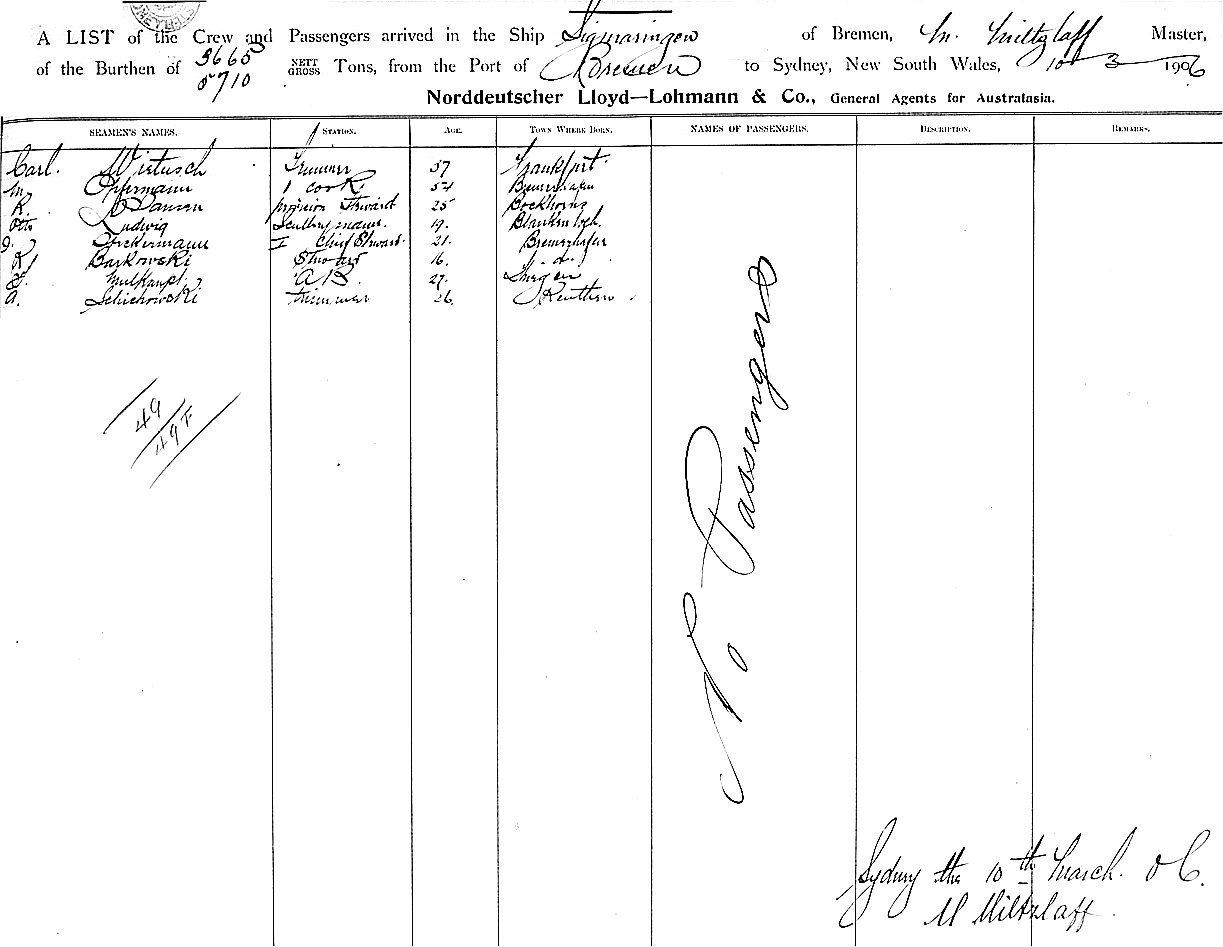 A LIST of the Crew and Passengers arrived in the Ship Sigmaringen of Bremen, M. Miltzlaff Master,
of the Burthen of 3665 5710 NETT GROSS Tons, from the Port of Bremen to Sydney, New South Wales, 10 3 1906
Norddeutscher Lloyd—Lohmann & Co., General Agents for Australasia.
SEAMEN'S NAMES. STATION. AGE. TOWN WHERE BORN. NAMES OF PASSENGERS. DESCRIPTION. REMARKS.
Carl. Wietusch Trimmer 37 Frankfurt.
Opfermann 1 cook 54 Bremerhafen
R. provision Steward 25 Bockhorn
Otto Ludwig 19.
Ockermann I Chief Steward. 21. Bremerhafen
Barkowski Steward 16.
AB 27.
A. Schichowski trimmer 26.
49
49 F
No Passengers
Sydney the 10th March. 06.
M Miltzlaff